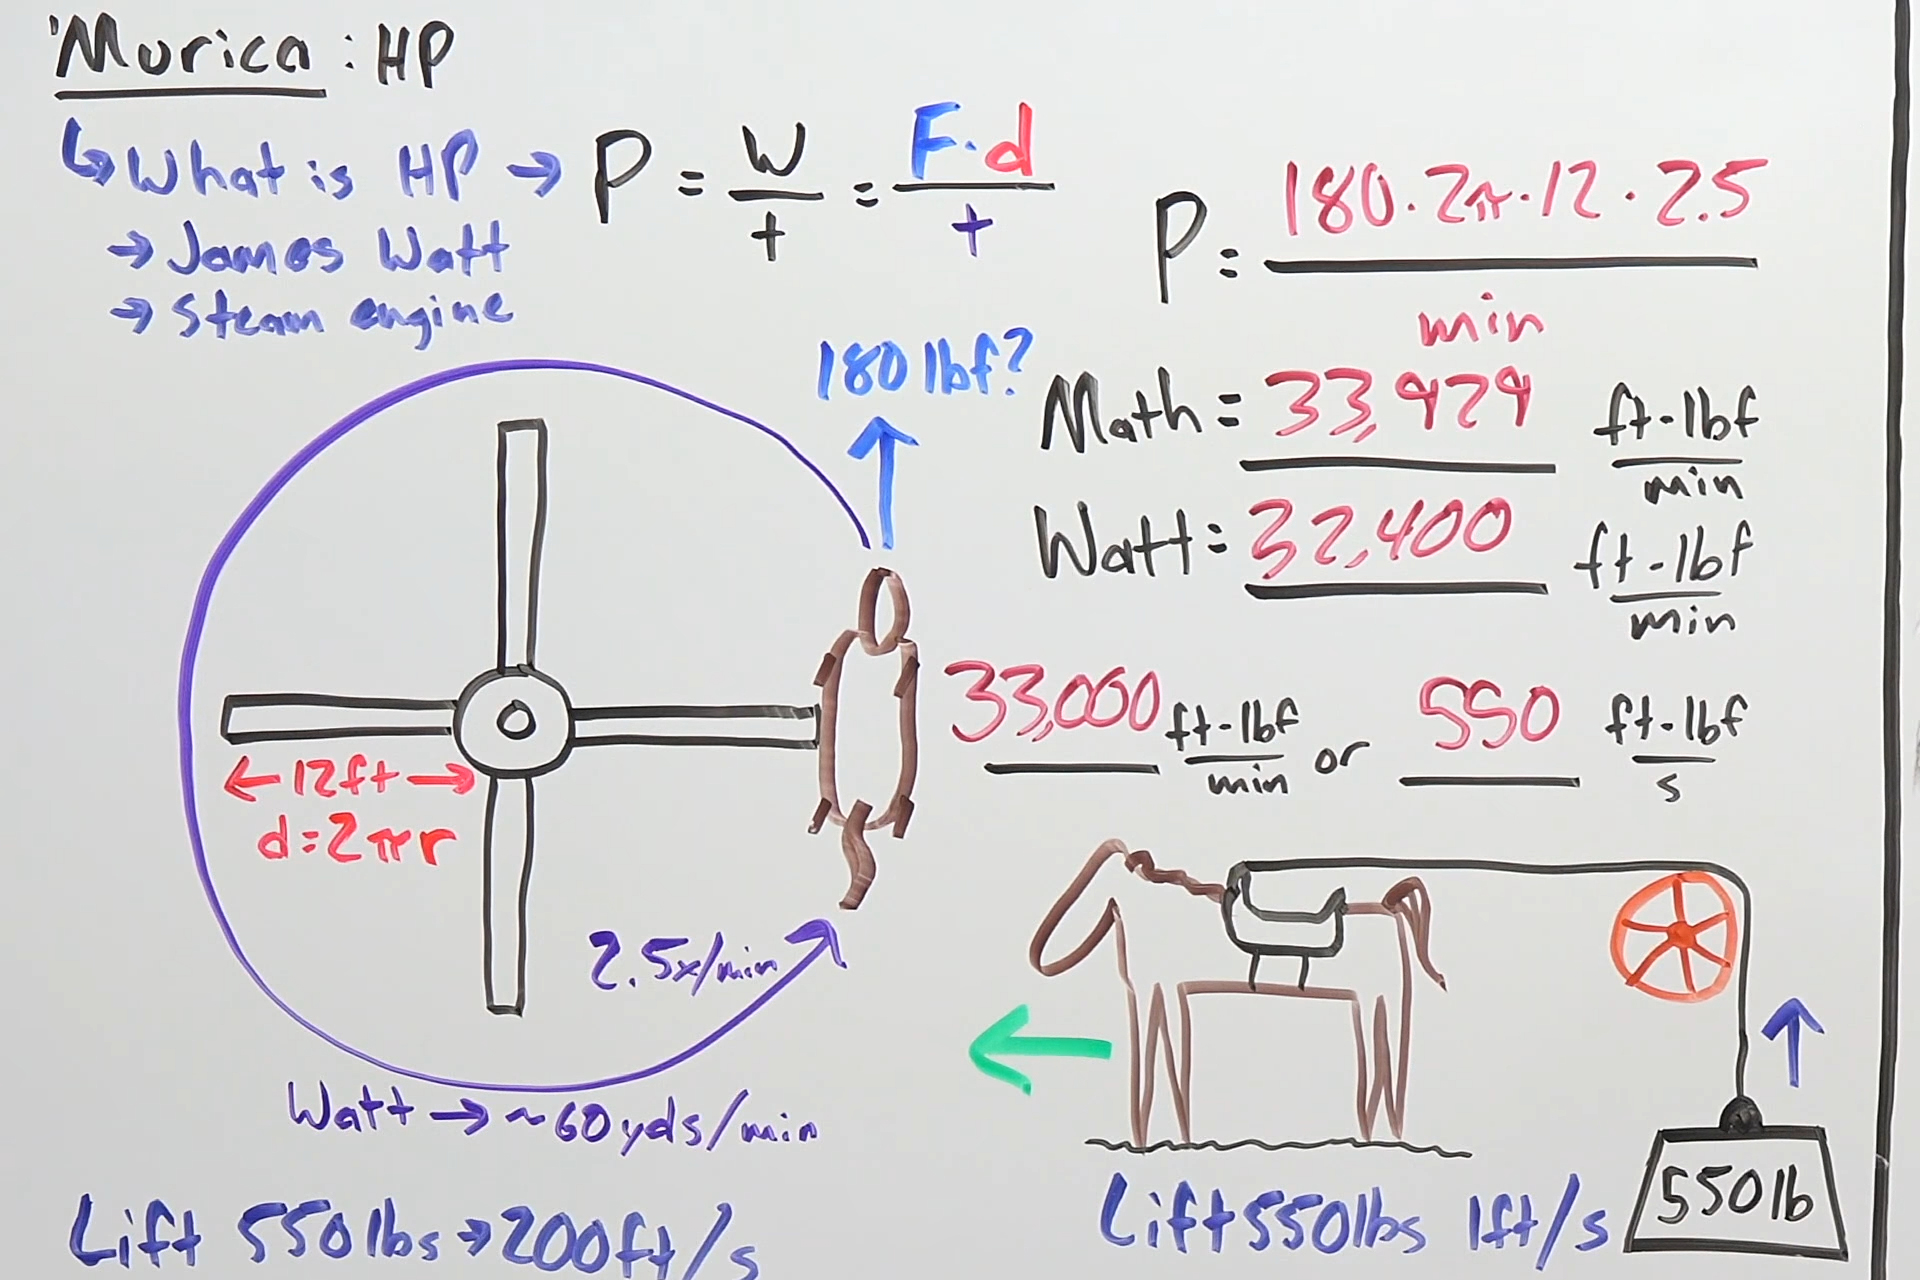 'Murica : HP
↳ What is HP → P = W/t = F·d/t
→ James Watt
→ Steam engine
P = 180 · 2π · 12 · 2.5 / min
180 lbf?
Math = 33,929 ft-lbf/min
Watt = 32,400 ft-lbf/min
33,000 ft-lbf/min or 550 ft-lbf/s
← 12ft →
d=2πr
2.5x/min
Watt → ~60yds/min
Lift 550lbs → 200ft/s
Lift 550lbs 1ft/s
550lb